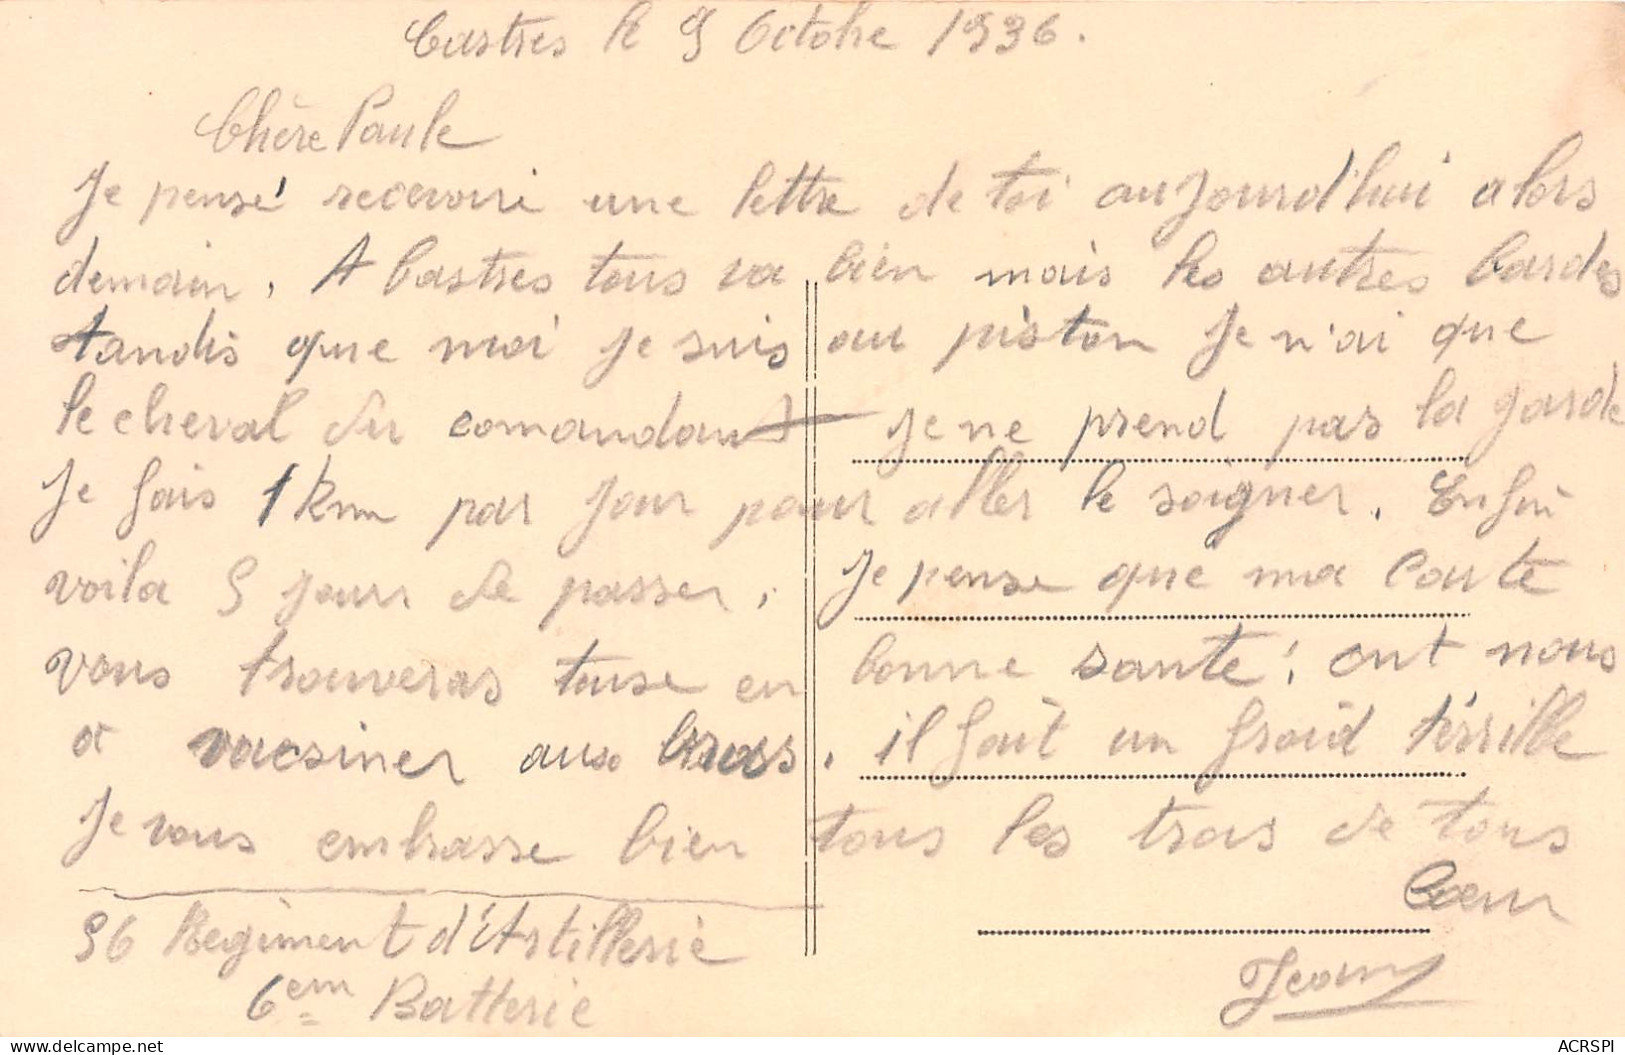 Castres le 9 Octobre 1936.
Chère Paule
Je pensé recevoiri une lettre de toi aujourd'hui alors
demain. A Castres tous va bien mais les autres bardes
tandis que moi je suis au piston je n'ai que
le cheval du comandant je ne prend pas la garde
Je fais 1 km par jour pour aller le soigner. Enfin
voila 9 jours de passer. Je pense que ma carte
vous trouveras touse en bonne sante; ont nous
a vacsiner aux bras. il fait un froid térrible
Je vous embrasse bien tous les trois de tous
Cœur
Jean
56 Regiment d'Artillerie
6em Batterie
ACRSPI
delcampe.net